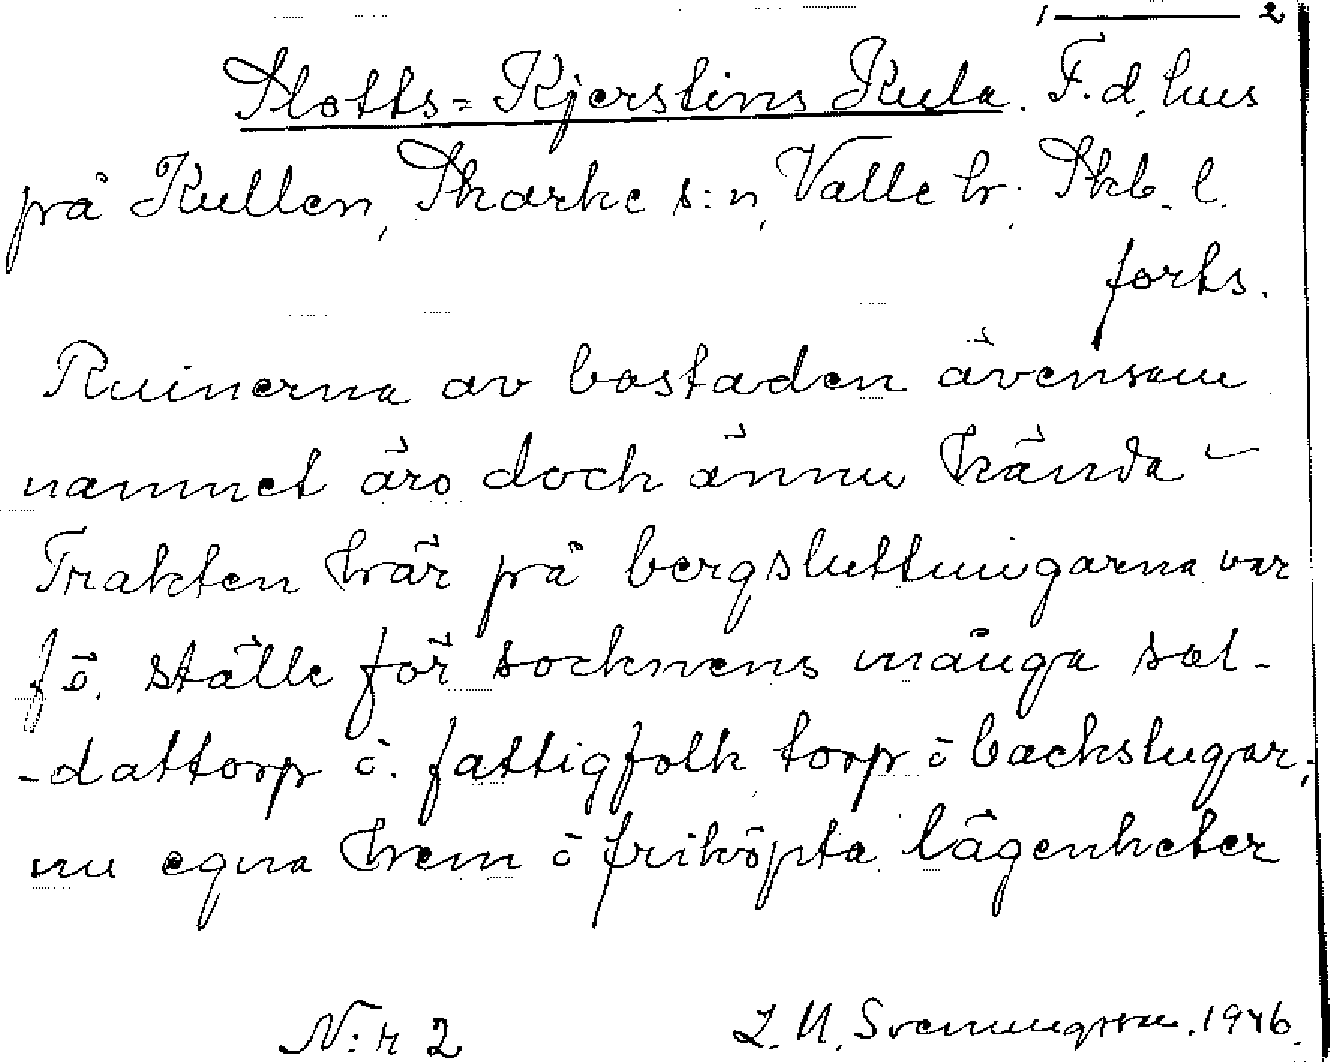 1 ——— 2
Slotts-Kjerstins Kula. F.d. hus
på Kullen, Skarke s:n, Valle hr. Skb. l.
forts.
Ruinerna av bostaden ävensom
namnet äro doch ännu kända
Trakten här på bergsluttningarna var
f ö. ställe för socknens många sol-
-dattorp o. fattigfolk torp o backstugar,
nu egna hem o friköpta lägenheter
N:r 2 L. M. Svenungsson. 1946.